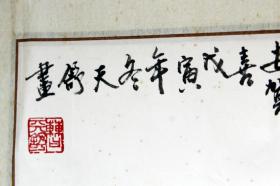 喜戊寅年冬天舒畫